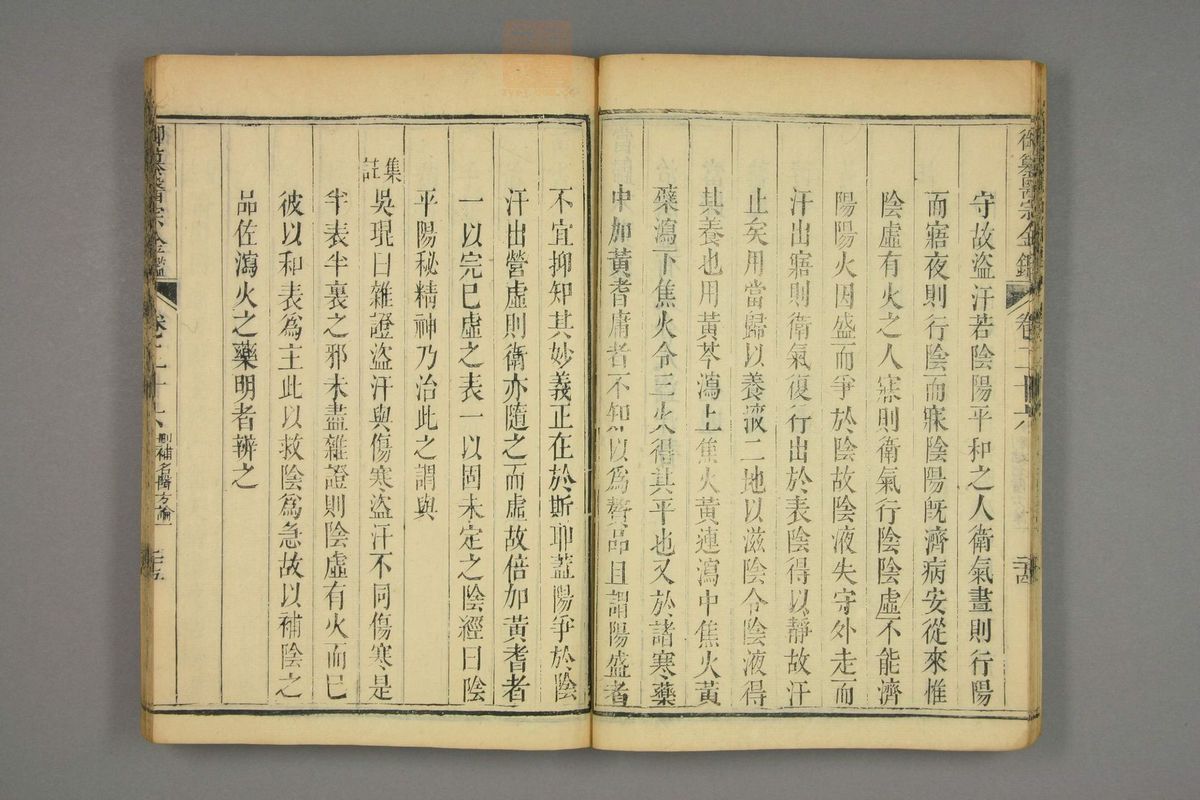 御纂醫宗金鑑
卷二十六
守故盜汗若陰陽平和之人衛氣晝則行陽
而寤夜則行陰而寐陰陽旣濟病安從來惟
陰虛有火之人寐則衛氣行陰陰虛不能濟
陽陽火因盛而爭於陰故陰液失守外走而
汗出寤則衛氣復行出於表陰得以靜故汗
止矣用當歸以養液二地以滋陰令陰液得
其養也用黃芩瀉上焦火黃連瀉中焦火黃
蘗瀉下焦火令三火得其平也又於諸寒藥
中加黃耆庸者不知以爲贅品且謂陽盛者
不宜抑知其妙義正在於斯耶蓋陽爭於陰
汗出營虛則衛亦隨之而虛故倍加黃耆者
一以完已虛之表一以固未定之陰經曰陰
平陽秘精神乃治此之謂與
集註
吳琨曰雜證盜汗與傷寒盜汗不同傷寒是
半表半裏之邪未盡雜證則陰虛有火而已
彼以和表爲主此以救陰爲急故以補陰之
品佐瀉火之藥明者辨之
御纂醫宗金鑑
卷二十六
刪補名醫方論